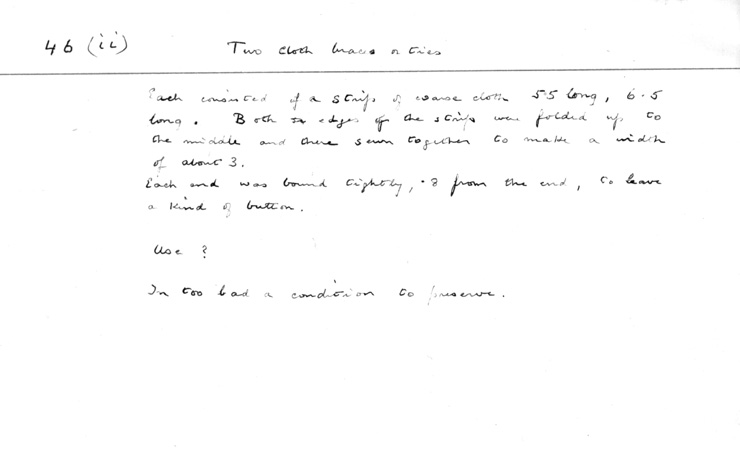 46 (ii)
Two cloth braces or ties
Each consisted of a strip of coarse cloth 55 long, 6.5
long. Both edges of the strip were folded up to
the middle and there sewn together to make a width
of about 3.
Each end was bound tightly, .8 from the end, to leave
a kind of button.
Use ?
In too bad a condition to preserve.